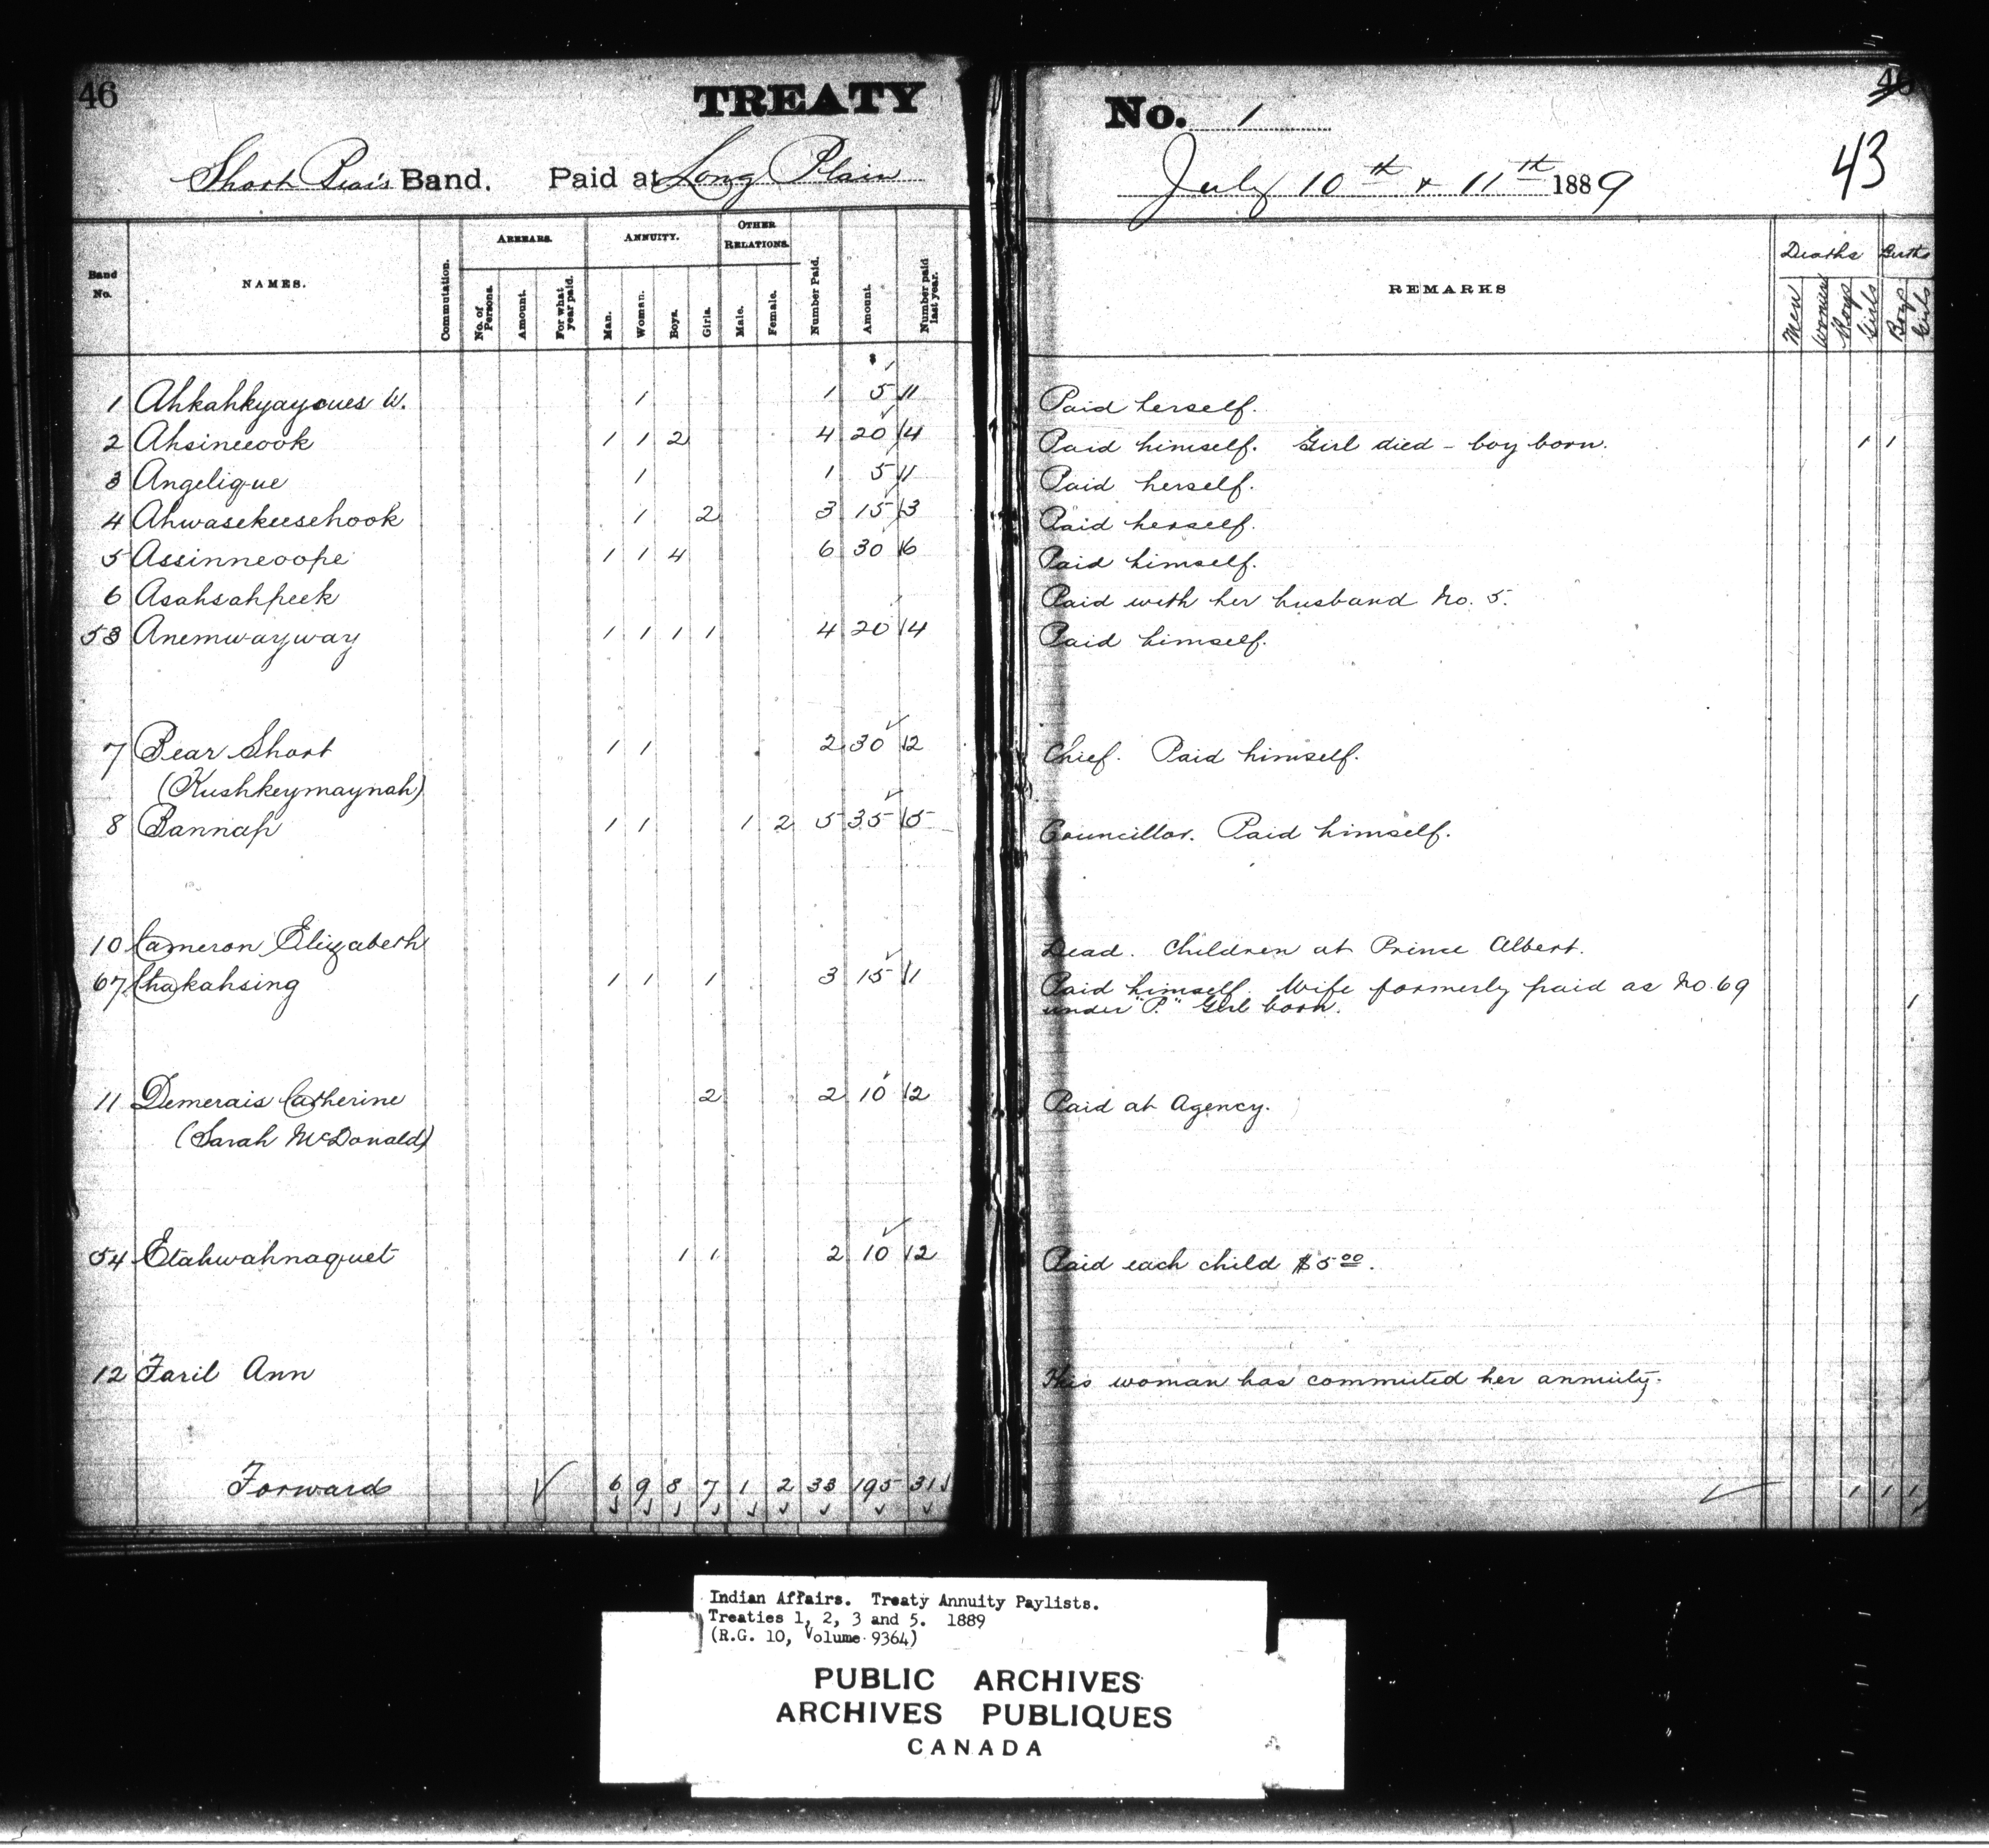 46
TREATY No. 1
46
43
Short Bear's Band. Paid at Long Plain July 10th & 11th 1889
Band No. NAMES. Commutation. ARREARS. No. of Persons. Amount. For what year paid. ANNUITY. Man. Woman. Boys. Girls. OTHER RELATIONS. Male. Female. Number Paid. Amount. Number paid last year. REMARKS Deaths Men Women Boys Girls Births Boys Girls
$
1 Ahkahkyayoues W. 1 1 5 1 Paid herself.
2 Ahsineeook 1 1 2 4 20 4 Paid himself. Girl died - boy born. 1 1
3 Angelique 1 1 5 1 Paid herself.
4 Ahwasekeesehook 1 2 3 15 3 Paid herself.
5 Assinneoope 1 1 4 6 30 6 Paid himself.
6 Asahsahpeek Paid with her husband No. 5.
53 Anemwayway 1 1 1 1 4 20 4 Paid himself.
7 Bear Short 1 1 2 30 2 Chief. Paid himself.
(Kushkeymaynah)
8 Bannap 1 1 1 2 5 35 5 Councillor. Paid himself.
10 Cameron Elizabeth Dead. Children at Prince Albert.
67 Chakahsing 1 1 1 3 15 1 Paid himself. Wife formerly paid as No. 69
under "P." Girl born. 1
11 Demerais Catherine 2 2 10 2 Paid at Agency.
(Sarah McDonald)
54 Etahwahnaquet 1 1 2 10 2 Paid each child $5.00.
12 Faril Ann This woman has commuted her annuity.
Forward 6 9 8 7 1 2 33 195 31 1 1 1
Indian Affairs. Treaty Annuity Paylists.
Treaties 1, 2, 3 and 5. 1889
(R.G. 10, Volume 9364)
PUBLIC ARCHIVES
ARCHIVES PUBLIQUES
CANADA